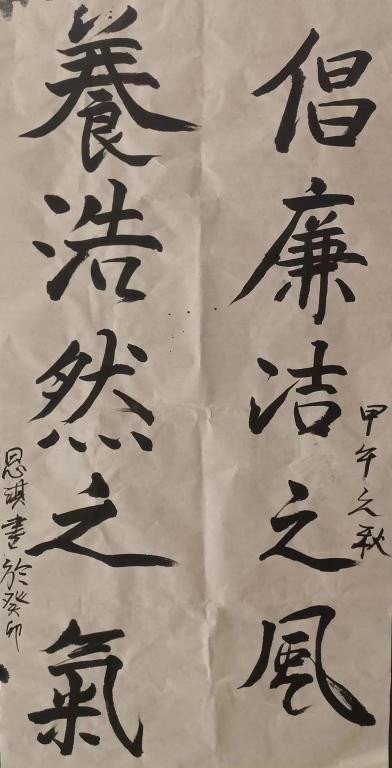 倡廉洁之风
甲午之秋
養浩然之氣
恩琪書於癸卯